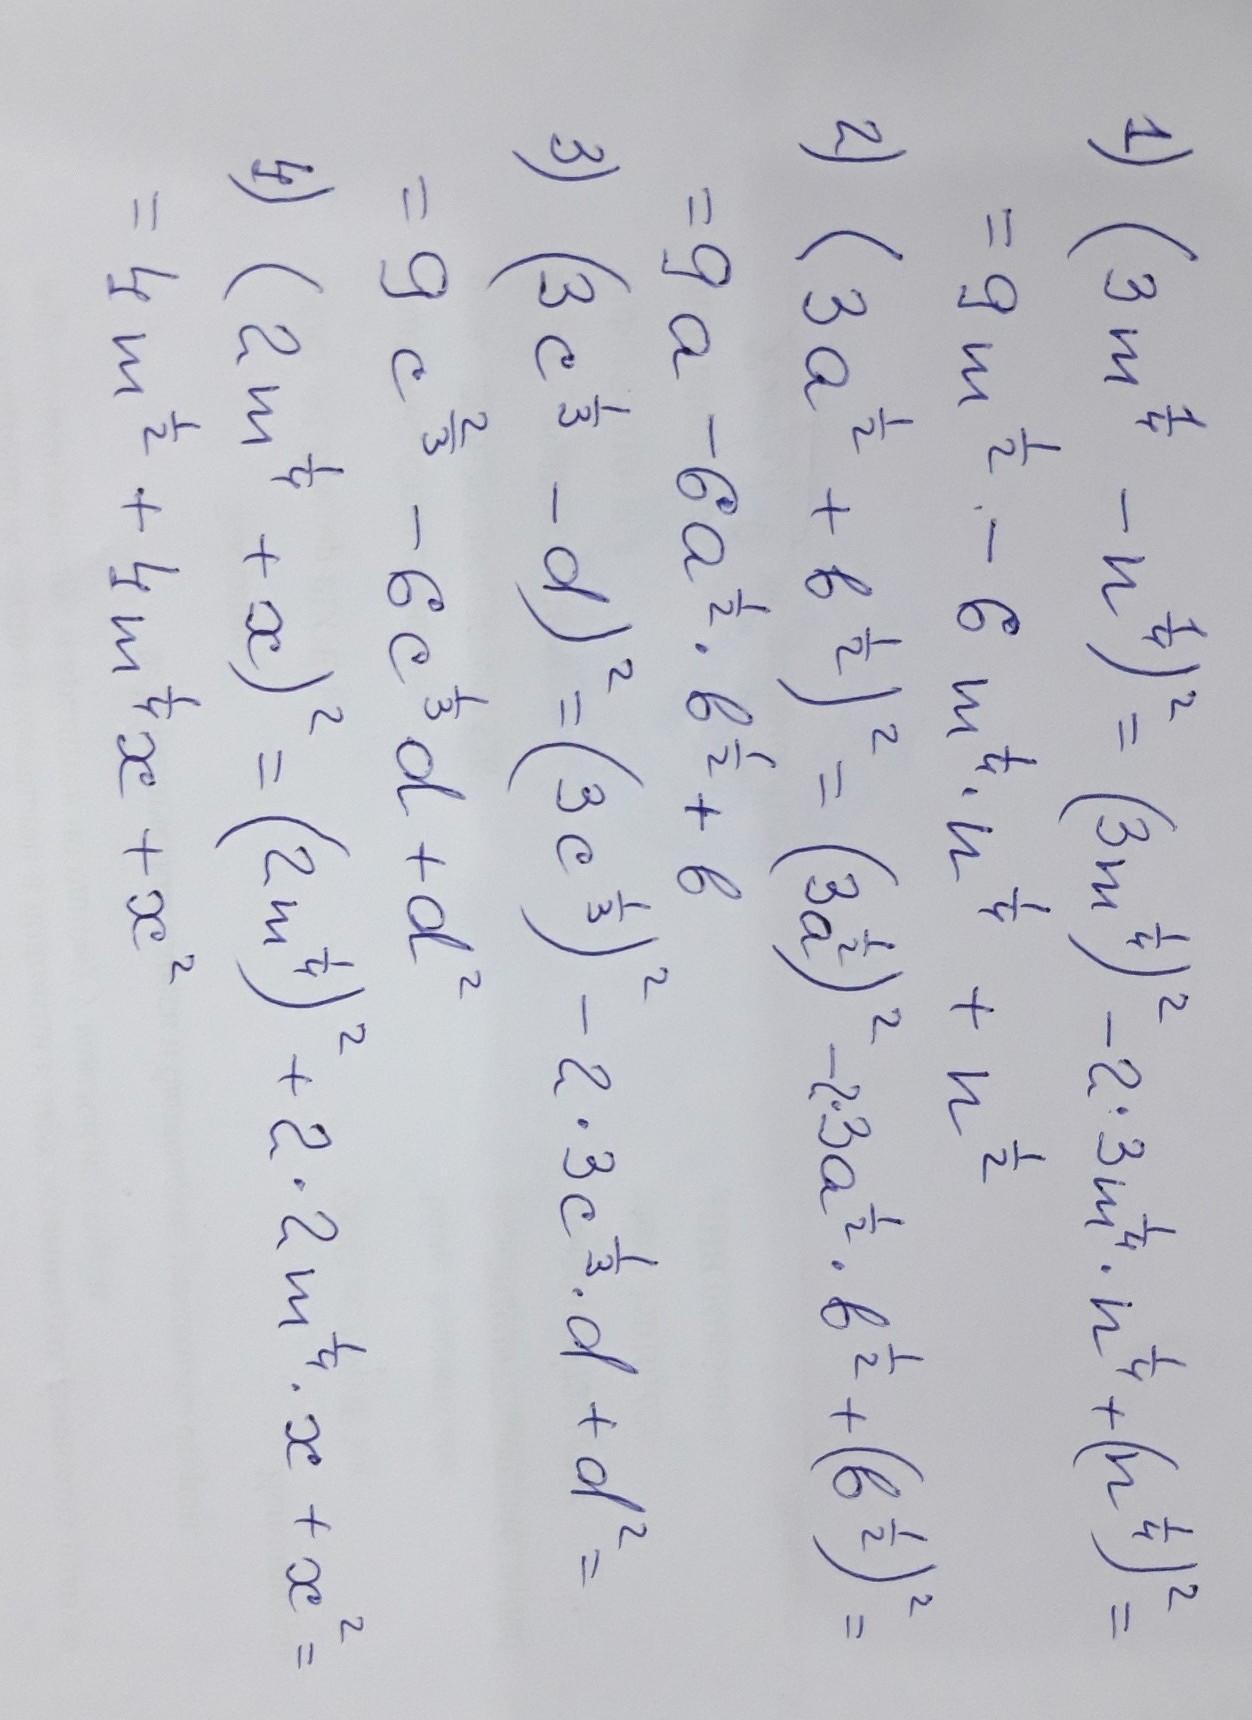 1) (3m^{1/4} - n^{1/4})^2 = (3m^{1/4})^2 - 2·3m^{1/4}·n^{1/4} + (n^{1/4})^2 =
= 9m^{1/2} - 6m^{1/4}·n^{1/4} + n^{1/2}
2) (3a^{1/2} + b^{1/2})^2 = (3a^{1/2})^2 - 2·3a^{1/2}·b^{1/2} + (b^{1/2})^2 =
= 9a - 6a^{1/2}·b^{1/2} + b
3) (3c^{1/3} - d)^2 = (3c^{1/3})^2 - 2·3c^{1/3}·d + d^2 =
= 9c^{2/3} - 6c^{1/3}d + d^2
4) (2m^{1/4} + x)^2 = (2m^{1/4})^2 + 2·2m^{1/4}·x + x^2 =
= 4m^{1/2} + 4m^{1/4}x + x^2